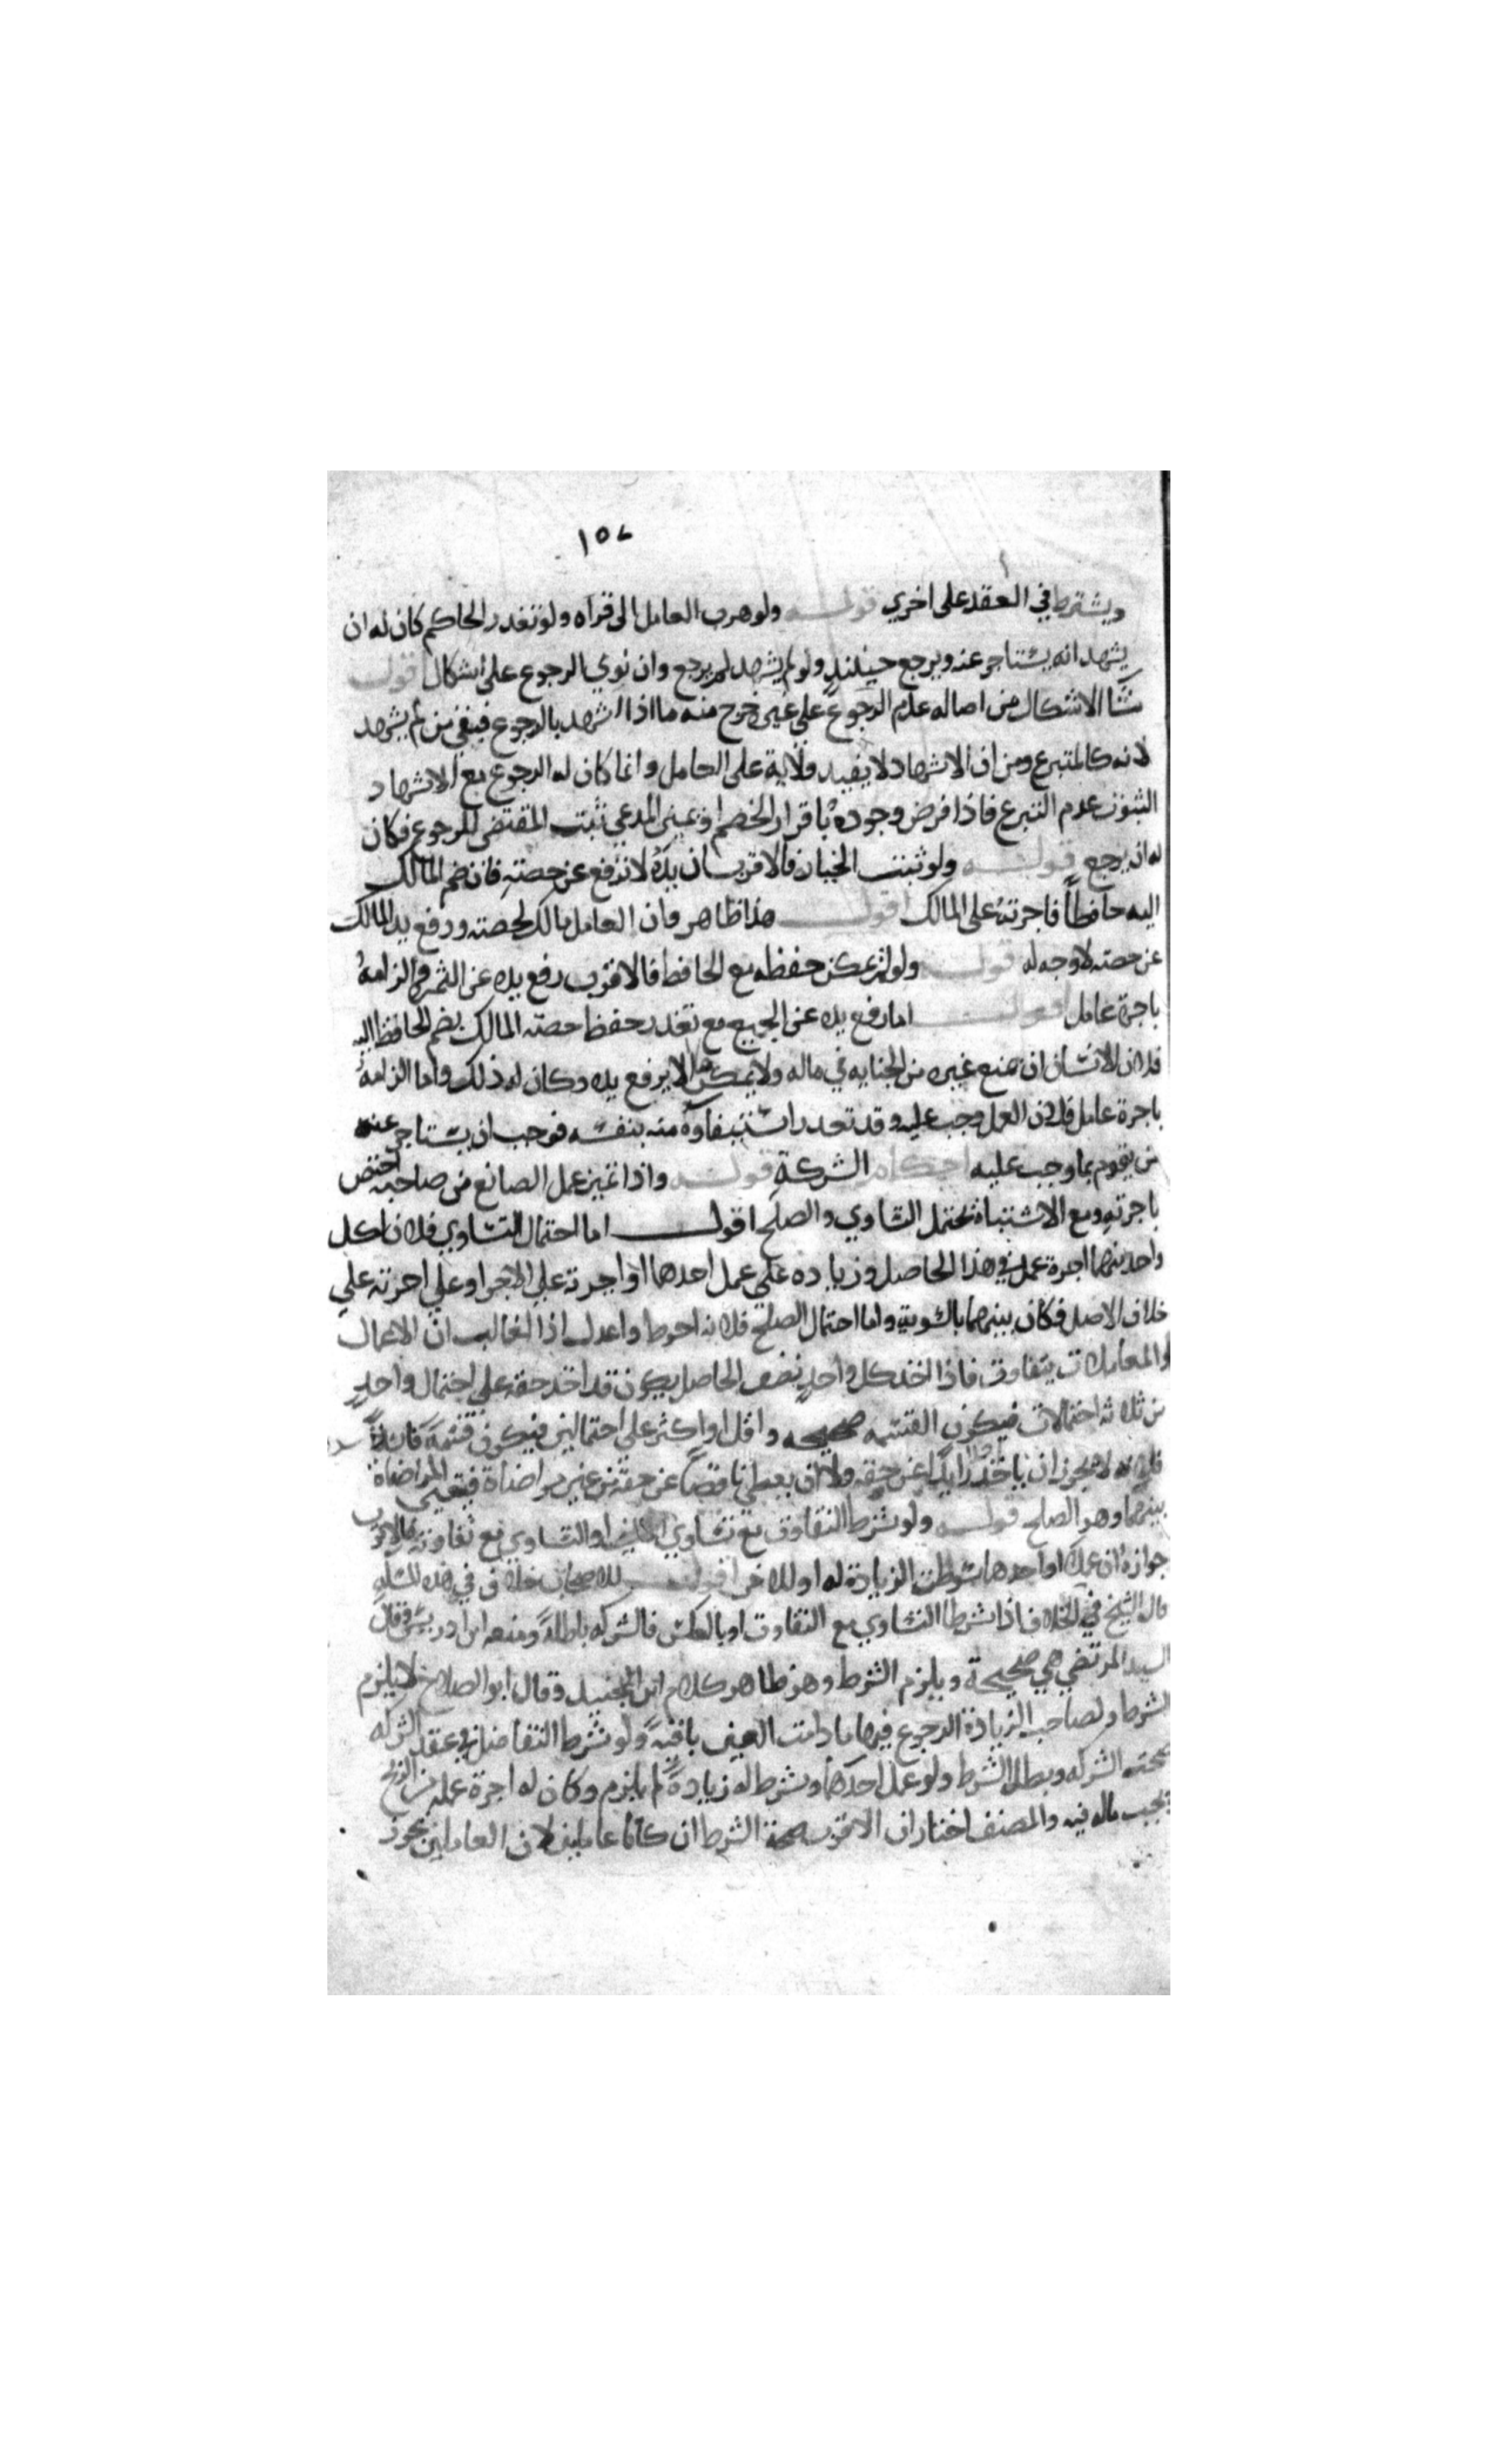 ١٥٧
ويشترط في العقد على اخري قولـــه ولو هرب العامل الى قراه ولو تعذر الحاكم كان له ان
يشهد انه يستاجر عنه ويرجع حينئذ ولو لم يشهد لم يرجع وان نوي الرجوع على اشكال اقول
منشا الاشكال من اصاله عدم الرجوع على غيره خرج منه ما اذا اشهد بالرجوع فبقي من لم يشهد
لانه كالمتبرع ومن ان الاشهاد لا يفيد ولاية على العامل وانما كان له الرجوع مع الاشهاد
لثبوت عدم التبرع فاذا فرض وجوده باقرار الخصم او يمين المدعي ثبت المقتضى للرجوع فكان
له ان يرجع قولـــه ولو ثبتت الخيانه فالاقرب ان يده لا ترفع عن حصته فان ضم المالك
اليه حافظاً فاجرته على المالك اقول هذا ظاهر فان العامل مالك لحصته ورفع يد المالك
عن حصته لا وجه له قولـــه ولو لم يمكن حفظه مع الحافظ فالاقرب رفع يده عن الثمره والزامهُ
باجرة عامل اقول اما رفع يده عن الجميع مع تعذر حفظ حصته المالك بضم الحافظ اليه
فلان للانسان ان يمنع غيره من الجنايه في ماله ولا يمكن الا برفع يده وكان له ذلك واما الزامهُ
باجرة عامل فلان العمل وجب عليه وقد تعذر استيفاوه منه بنفسه فوجب ان يستاجر عنه
من يقوم بما وجب عليه احكام الشركة قولـــه واذا تميز عمل الصانع من صاحبه اختص
باجرته ومع الاشتباه يحتمل التساوي والصلح اقول اما احتمال التساوي فلان لكل
واحد منهما اجرة عمل في هذا الحاصل وزياده على عمل احدهما او اجرته على الاخر او على اجرته على
خلاف الاصل فكان بينهما بالسويه واما احتمال الصلح فلانه احوط واعدل اذ الغالب ان الاعمال
والمعاملات يتفاوت فاذا اخذ كل واحدٍ نصف الحاصل يكون قد اخذ حقه على احتمال واحدٍ
من ثلاثه احتمالات فيكون القسمه صحيحه واقل او اكثر على احتمالين فيكون قسمة فاسدةً
فلانه لا يجوز ان ياخذ زايداً عن حقه ولا ان يعطي ناقصاً عن حقه من غير مراضاة فتعين المراضاة
بينهما وهو الصلح قولـــه ولو شرط التفاوت مع تساوي المالين او التساوي مع تفاوته فالاقرب
جوازه ان عملا او احدهما شرطت الزيادة له او للاخر اقول للاصحاب خلاف في هذه المسئله
قال الشيخ في الخلاف اذا شرطا التساوي مع التفاوت او بالعكس فالشركه باطلةً ومنعه ابن ادريس وقال
السيد المرتضي هي صحيحة ويلزم الشرط وهو ظاهر كلام ابن الجنيد وقال ابو الصلاح لا يلزم
الشرط ولصاحب الزيادة الرجوع فيها ما دامت العين باقيةً ولو شرط التفاضل في عقد الشركه
صحته الشركه وبطل الشرط ولو عمل احدهما وشرط له زيادةً لم يلزم وكان له اجرة عمله من الربح
بحسب ماله فيه والمصنف اختار ان الاقرب صحة الشرط ان كانا عاملين لان العاملين يجوز